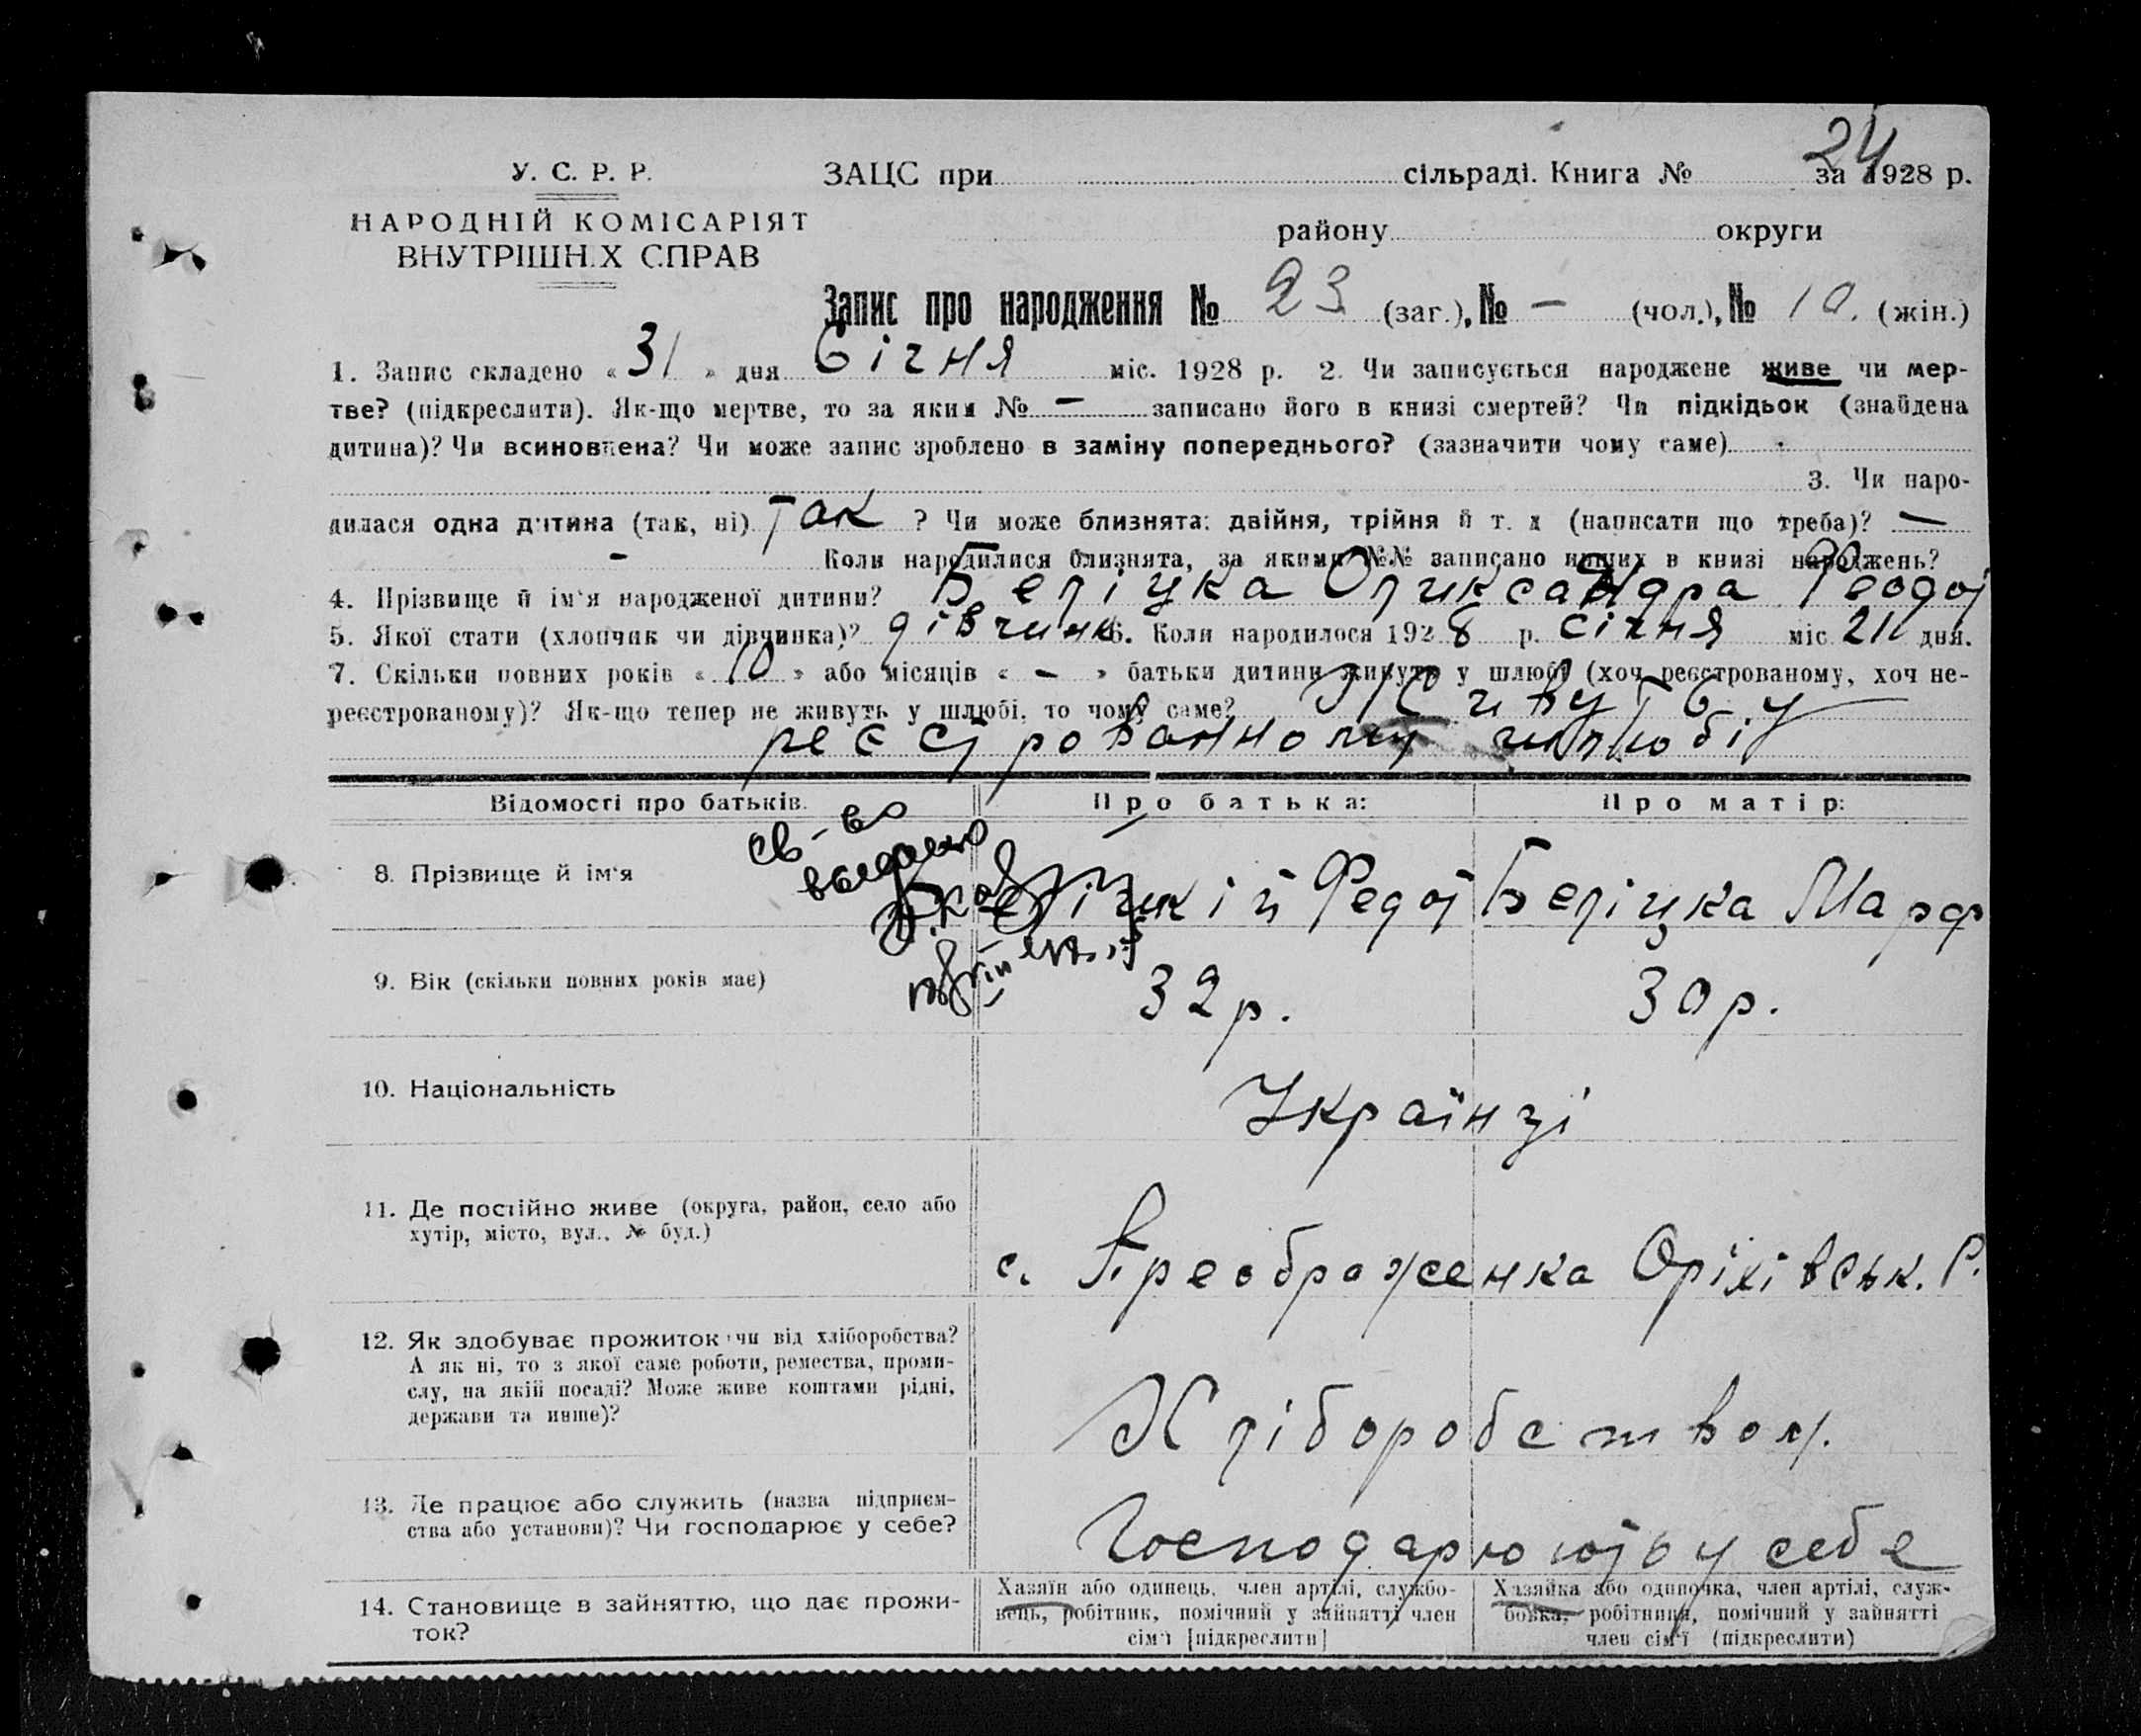 24
У. С. Р. Р.
ЗАЦС при сільраді. Книга № за 1928 р.
НАРОДНІЙ КОМІСАРІЯТ
ВНУТРІШН.Х СПРАВ
району округи
Запис про народження № 23 (заг.), № — (чол.), № 10. (жін.)
1. Запис складено « 31 » дня Січня міс. 1928 р. 2. Чи записується народжене живе чи мер-
тве? (підкреслити). Як-що мертве, то за яким № — записано його в книзі смертей? Чи підкідьок (знайдена
дитина)? Чи всиновлена? Чи може запис зроблено в заміну попереднього? (зазначити чому саме)
3. Чи наро-
дилася одна дитина (так, ні) Так ? Чи може близнята: двійня, трійня й т. д (написати що треба)? —
— Коли народилися близнята, за якими №№ записано инших в книзі народжень?
4. Прізвище й ім'я народженої дитини? Беліцка Оликсандра Феодот
5. Якої стати (хлопчик чи дівчинка)? дівчинка 6. Коли народилося 1928 р. Січня міс. 21 дня.
7. Скільки повних років « 10 » або місяців « — » батьки дитини живуть у шлюбі (хоч реєстрованому, хоч не-
реєстрованому)? Як-що тепер не живуть у шлюбі, то чому саме? Живуть у
реєстрованному шлюбі
Відомості про батьків. Про батька: Про матір:
св-во
выдано
8. Прізвище й ім'я Беліцкій Федот Беліцка Марф
9. Вік (скільки повних років має) 32 р. 30 р.
10. Національність Українзі
11. Де постійно живе (округа, район, село або
хутір, місто, вул., № буд.)
с. Преображенка Оріхівськ. Р.
12. Як здобуває прожиток чи від хліборобства?
А як ні, то з якої саме роботи, ремества, проми-
слу, на якій посаді? Може живе коштами рідні,
держави та инше)?
Хліборобством.
13. Де працює або служить (назва підприєм-
ства або установи)? Чи господарює у себе?
Господарюють у себе
14. Становище в зайняттю, що дає прожи-
ток?
Хазяїн або одинець, член артілі, службо-
вець, робітник, помічний у зайнятті член
сім'ї [підкреслити]
Хазяйка або одиночка, член артілі, служ-
бовка, робітниця, помічний у зайнятті
член сім'ї (підкреслити)